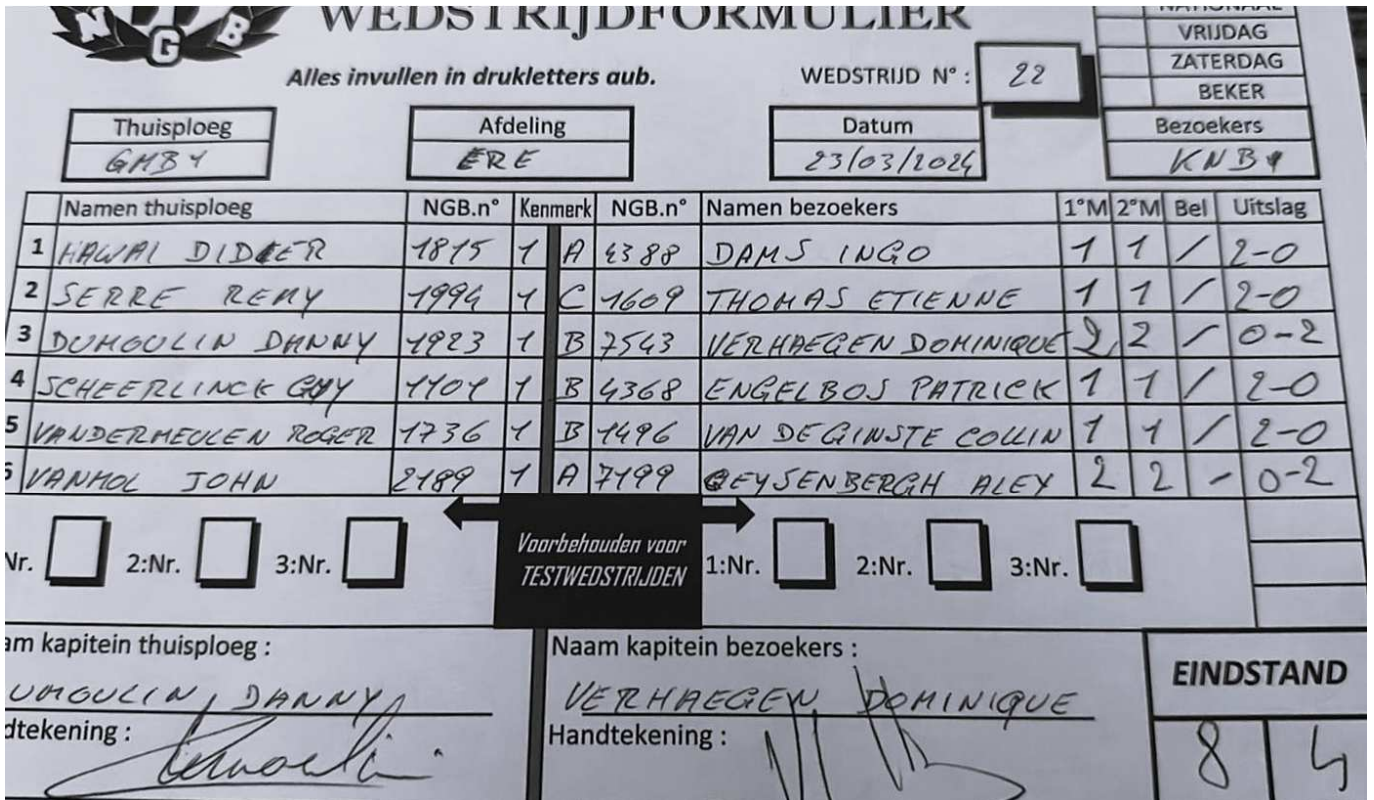 WEDSTRIJDFORMULIER
NGB
NATIONAAL
VRIJDAG
ZATERDAG
BEKER
Alles invullen in drukletters aub.
WEDSTRIJD N° : 22
Thuisploeg Afdeling Datum Bezoekers
GMB1 ERE 23/03/2024 KNB1
Namen thuisploeg NGB.n° Kenmerk NGB.n° Namen bezoekers 1°M 2°M Bel Uitslag
1 HAWAI DIDIER 1815 1 A 4388 DAMS INGO 1 1 / 2-0
2 SERRE REMY 1994 1 C 1609 THOMAS ETIENNE 1 1 / 2-0
3 DUMOULIN DANNY 1923 1 B 7543 VERHAEGEN DOMINIQUE 2 2 / 0-2
4 SCHEERLINCK GUY 1101 1 B 4368 ENGELBOS PATRICK 1 1 / 2-0
5 VANDERMEULEN ROGER 1736 1 B 1496 VAN DE GINSTE COLLIN 1 1 / 2-0
VANMOL JOHN 2189 1 A 7199 GEYSENBERGH ALEX 2 2 - 0-2
Nr. 2:Nr. 3:Nr. Voorbehouden voor TESTWEDSTRIJDEN 1:Nr. 2:Nr. 3:Nr.
am kapitein thuisploeg : Naam kapitein bezoekers : EINDSTAND
UMOULIN, DANNY VERHAEGEN DOMINIQUE
dtekening : Handtekening : 8 4